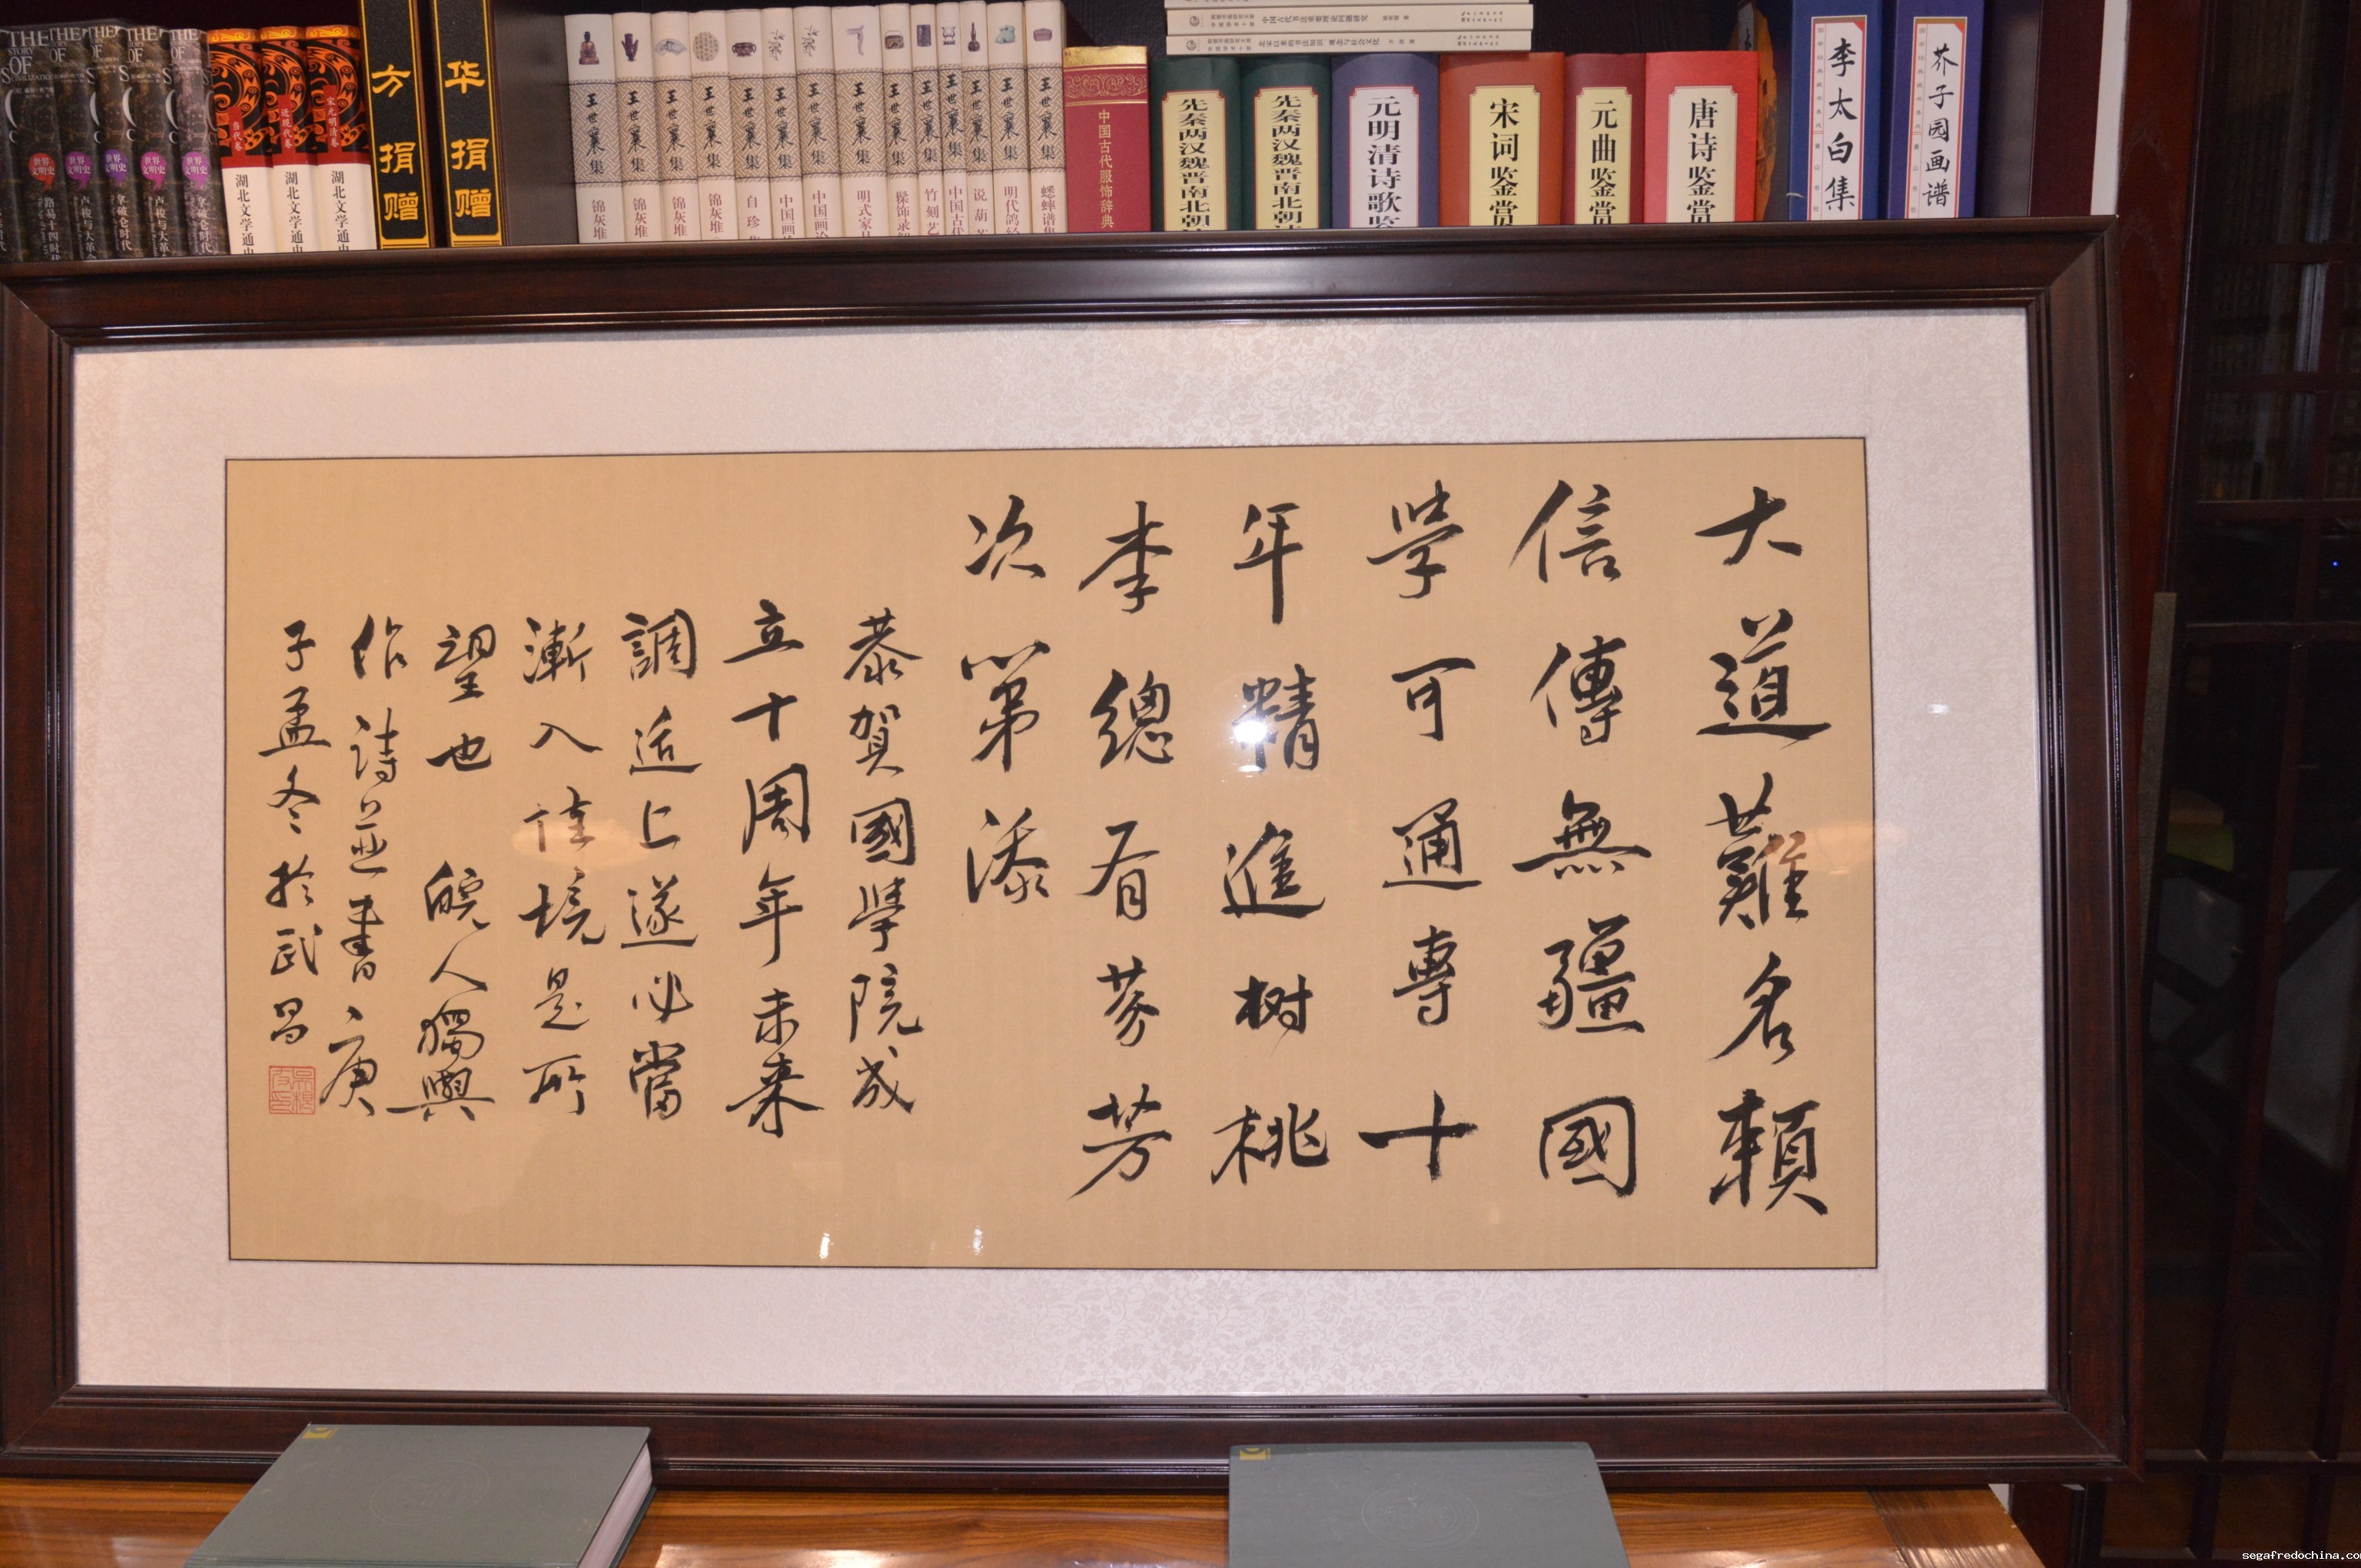 THE STORY OF CIVILIZATION
世界文明史
世界文明史
世界文明史
世界文明史
世界文明史
路易十四时代
拿破仑时代
卢梭与大革命
卢梭与大革命
拿破仑时代
当代卷
湖北文学通史
近现代卷
湖北文学通史
宋元明清卷
湖北文学通史
方 捐赠
华 捐赠
王世襄集 锦灰堆
王世襄集 锦灰堆
王世襄集 锦灰堆
王世襄集 锦灰堆
王世襄集 自珍
王世襄集 中国画
王世襄集 中国画论
王世襄集 明式家具
王世襄集 髹饰录
王世襄集 竹刻艺
王世襄集 中国古代
王世襄集 说葫芦
王世襄集 明代鸽经
王世襄集 蟋蟀谱集
中国古代服饰辞典
中国古代书法重要理论问题研究
先秦两汉魏晋南北朝
先秦两汉魏晋南北朝
元明清诗歌鉴
宋词鉴赏
元曲鉴赏
唐诗鉴赏
李太白集
芥子园画谱
大道難名賴
信傳無疆國
學可通專十
年精進树桃
李總有芬芳
次第添
恭賀國學院成
立十周年未來
調适上遂必當
漸入佳境是所
望也 皖人獨與
作詩並書 庚
子孟冬於武昌
segafredochina.co